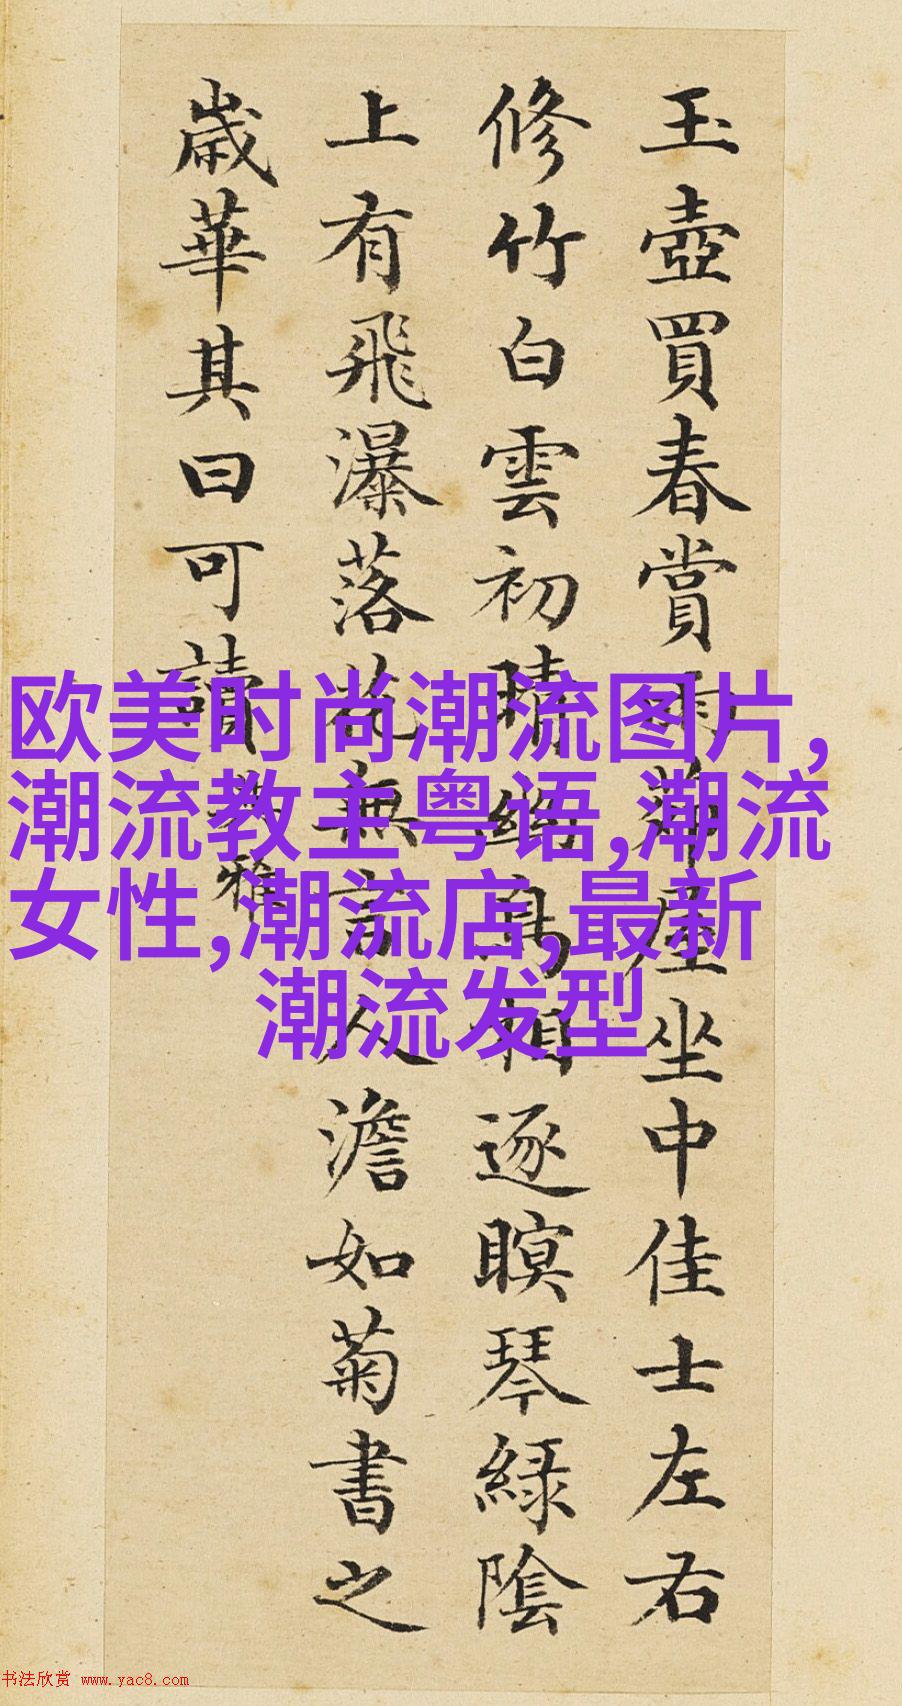 玉壺買春賞雨茆屋坐中佳士左右
修竹白雲初晴幽鳥相逐瞑琴綠陰
上有飛瀑落花無言人澹如菊書之
歲華其曰可讀
雅
欧美时尚潮流图片,
潮流教主粤语,潮流
女性,潮流店,最新
潮流发型
书法欣赏 www.yac8.com